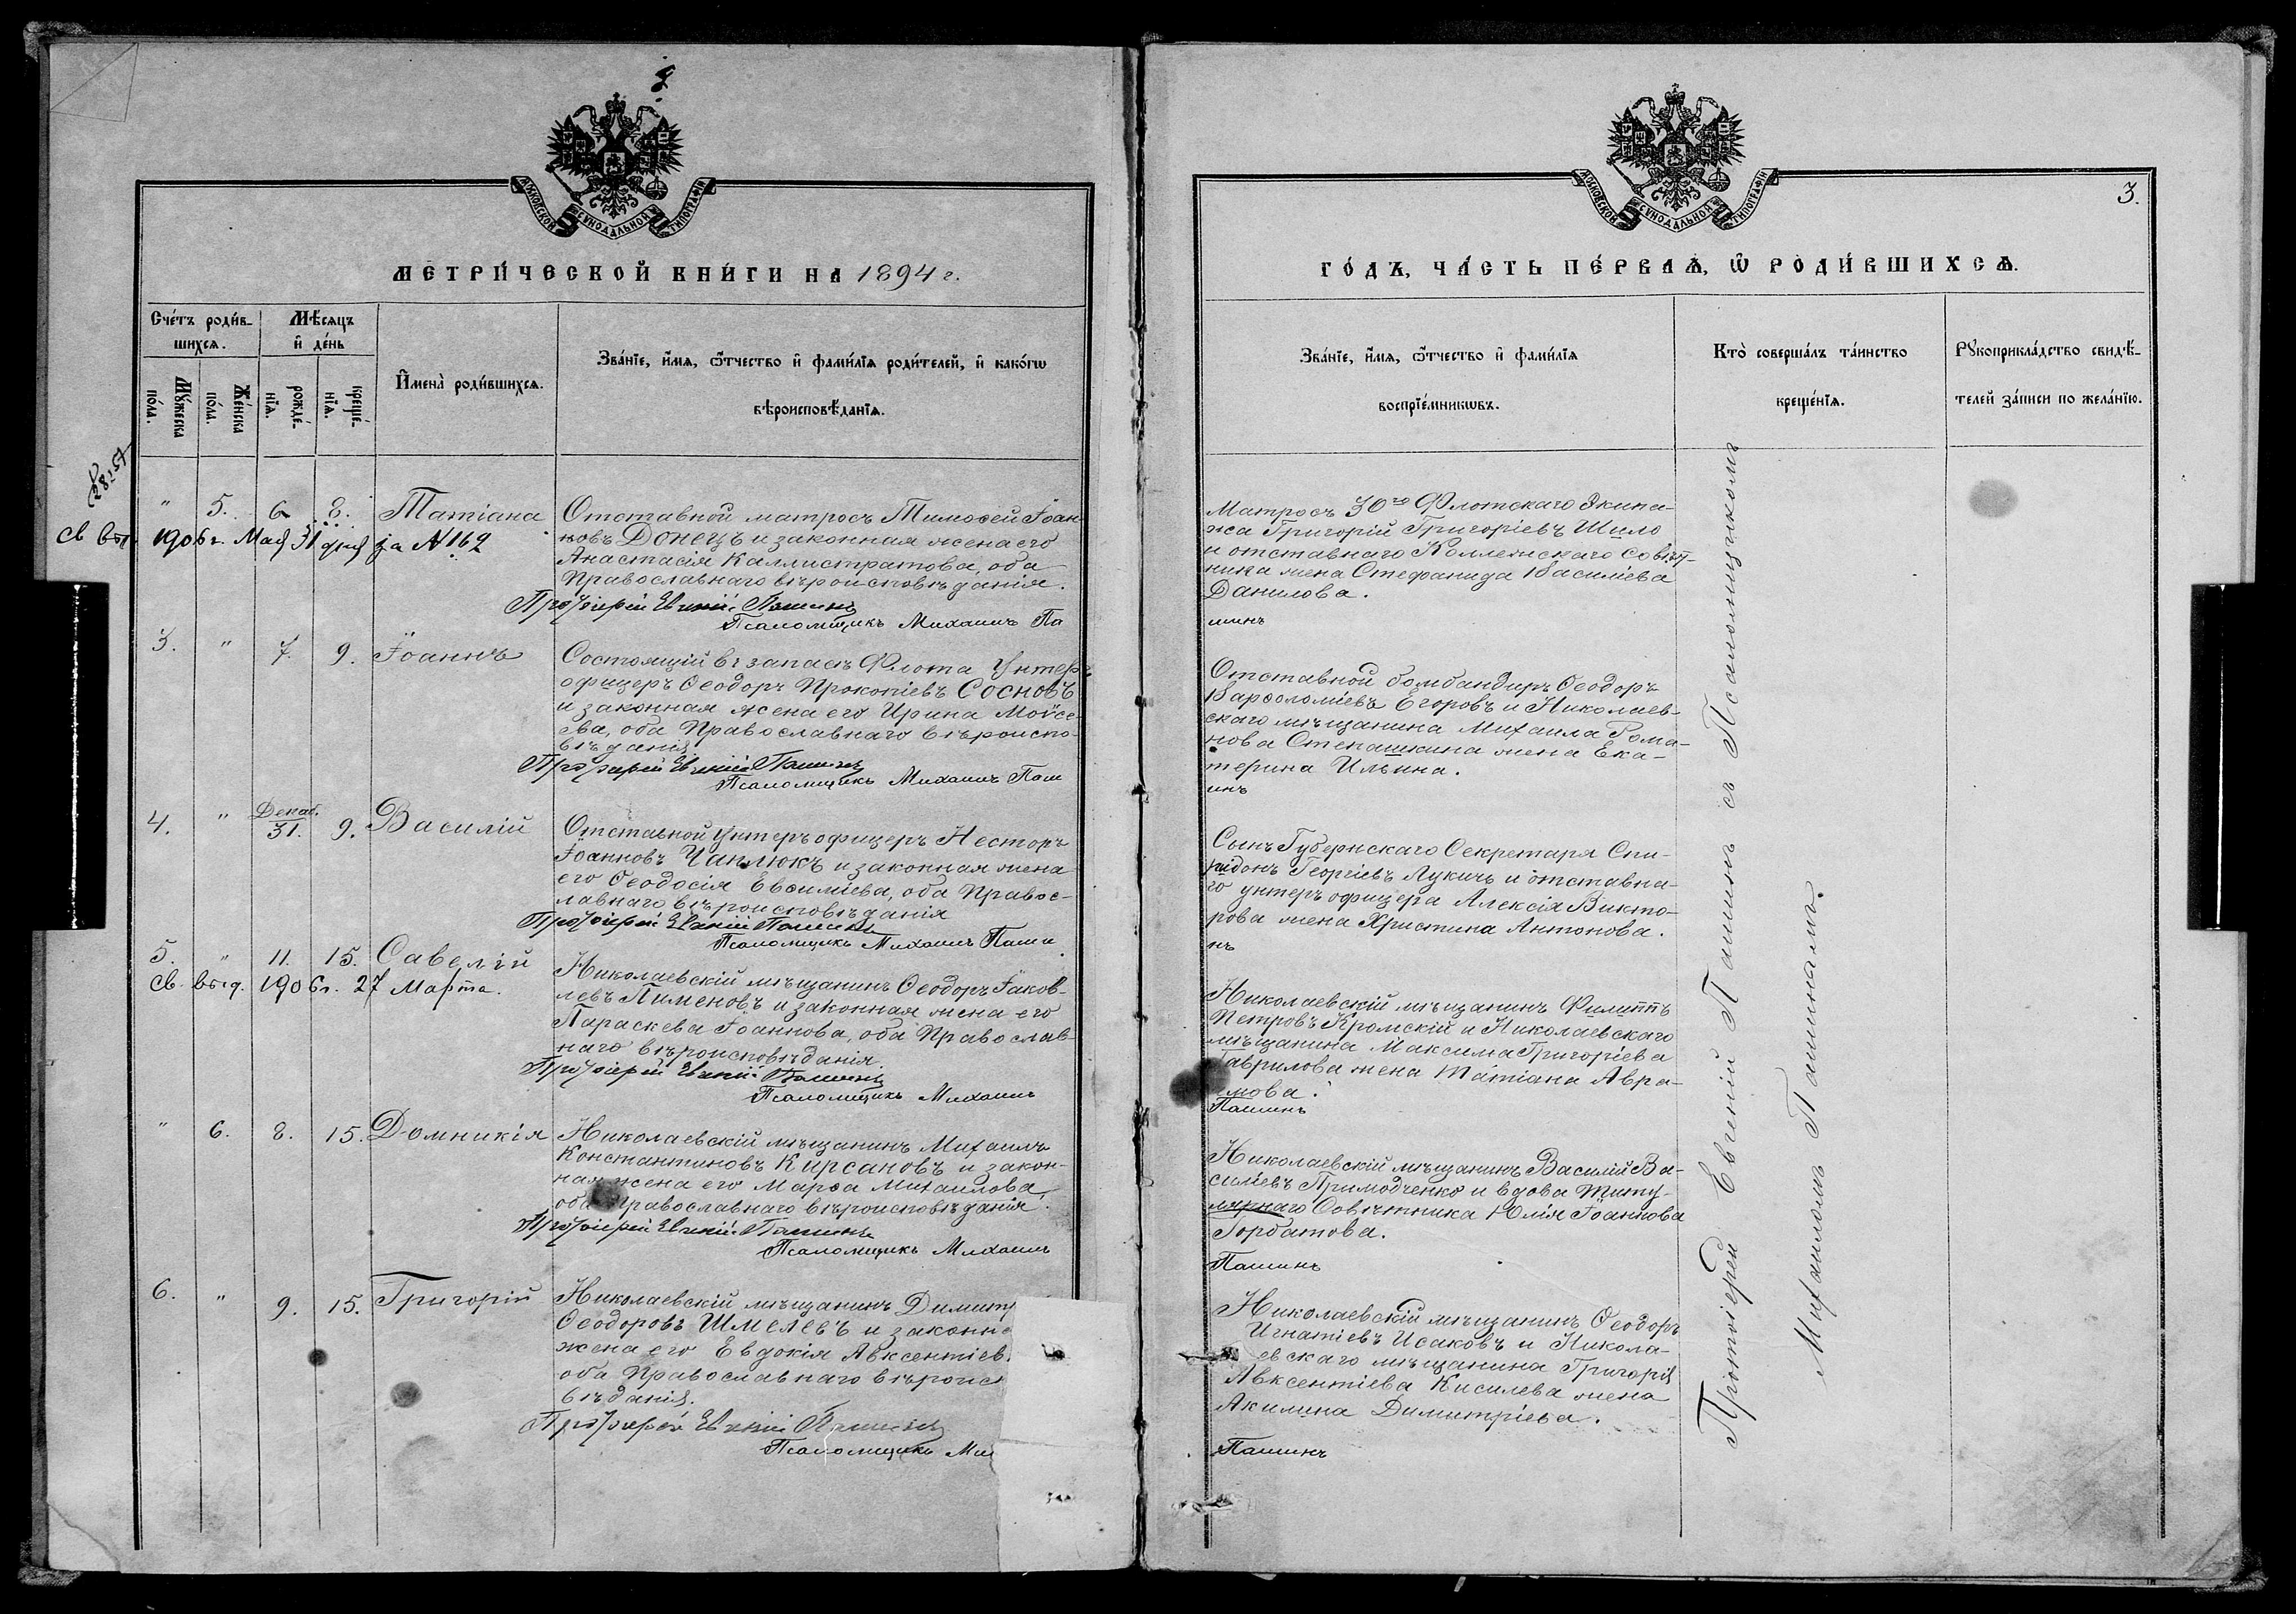 МОСКОВСКОЙ СѴНОДАЛЬНОЙ ТИПОГРАФІИ
МЕТРИ́ЧЕСКОЙ КНИ́ГИ НА 1894 г.
Сче́тъ роди́в-
шихсѧ.
Мѣ́сѧцъ
и҆ де́нь
Мꙋ́жеска
по́ла.
Же́нска
по́ла.
рожде́-
нїѧ.
креще́-
нїѧ.
И҆мена̀ роди́вшихсѧ.
Зва́нїе, и҆́мѧ, ѻ҆́тчество и҆ фами́лїѧ роди́телей, и҆ како́гѡ
вѣроисповѣ́данїѧ.
" 5. 6 8. Татіана
Отставной матросъ Тимоѳей Іоан-
новъ Донецъ и законная жена его
Анастасія Каллистратова, оба
Православнаго вѣроисповѣданія.
Св. выд. 1906 г. Мая 31 дня за № 162
Протоіерей Евгеній Пашинъ
Псаломщикъ Михаилъ Па
3. " 7. 9. Іоаннъ
Состоящій въ запасѣ Флота Унтеръ
офицеръ Ѳеодоръ Прокопіевъ Сосновъ
и законная жена его Ирина Моѵсе-
ева, оба Православнаго вѣроиспо-
вѣданія.
Протоіерей Евгеній Пашинъ
Псаломщикъ Михаилъ Паш
4. " Декаб. 31. 9. Василій
Отставной унтеръ офицеръ Несторъ
Іоанновъ Чаплюкъ и законная жена
его Ѳеодосія Евѳиміева, оба Правос-
лавнаго вѣроисповѣданія
Протоіерей Евгеній Пашинъ
Псаломщикъ Михаилъ Паши
5. " 11. 15. Савелій
Св. выд. 1906 г. 27 Марта.
Николаевскій мѣщанинъ Ѳеодоръ Іаков-
левъ Пименовъ и законная жена его
Параскева Іоаннова, оба Православ-
наго вѣроисповѣданія.
Протоіерей Евгеній Пашинъ
Псаломщикъ Михаилъ
" 6. 8. 15. Домникія
Николаевскій мѣщанинъ Михаилъ
Константиновъ Кирсановъ и закон-
ная жена его Марѳа Михаилова,
оба Православнаго вѣроисповѣданія.
Протоіерей Евгеній Пашинъ
Псаломщикъ Михаилъ
6. " 9. 15. Григорій
Николаевскій мѣщанинъ Димит
Ѳеодоровъ Шмелевъ и законн
жена его Евдокія Авксентіев
оба Православнаго вѣроис
вѣданія.
Протоіерей Евгеній Пашинъ
Псаломщикъ Ми
МОСКОВСКОЙ СѴНОДАЛЬНОЙ ТИПОГРАФІИ
3.
ГО́ДЪ, ЧА́СТЬ ПЕ́РВАѦ, Ѡ҆ РОДИ́ВШИХСѦ.
Зва́нїе, и҆́мѧ, ѻ҆́тчество и҆ фами́лїѧ
воспрїе́мникѡвъ.
Кто̀ соверша́лъ та́инство
креще́нїѧ.
Рꙋкоприкла́дство свидѣ́-
телей за́писи по жела́нїю.
Матросъ 30го Флотскаго Экипа-
жа Григорій Григоріевъ Шило
и отставнаго Коллежскаго Совѣт-
ника жена Стефанида Василіева
Данилова.
шинъ
Отставной бомбандиръ Ѳеодоръ
Варѳоломіевъ Егоровъ и Николаев-
скаго мѣщанина Михаила Рома-
нова Степашкина жена Ека-
терина Ильина.
инъ
Сынъ Губернскаго Секретаря Спи-
ридонъ Георгіевъ Лукичъ и отставна-
го унтеръ офицера Алексія Викто-
рова жена Христина Антонова.
нъ
Николаевскій мѣщанинъ Филиппъ
Петровъ Кромскій и Николаевскаго
мѣщанина Максима Григоріева
Гаврилова жена Татіана Авра-
мова.
Пашинъ
Николаевскій мѣщанинъ Василій Ва-
силіевъ Примодченко и вдова Титу-
лярнаго Совѣтника Юлія Іоаннова
Горбатова.
Пашинъ
Николаевскій мѣщанинъ Ѳеодоръ
Игнатіевъ Исаковъ и Никола-
евскаго мѣщанина Григорія
Авксентіева Кисилева жена
Акилина Димитріева.
Пашинъ
Протоіерей Евгеній Пашинъ съ Псаломщикомъ
Михаиломъ Пашинымъ.